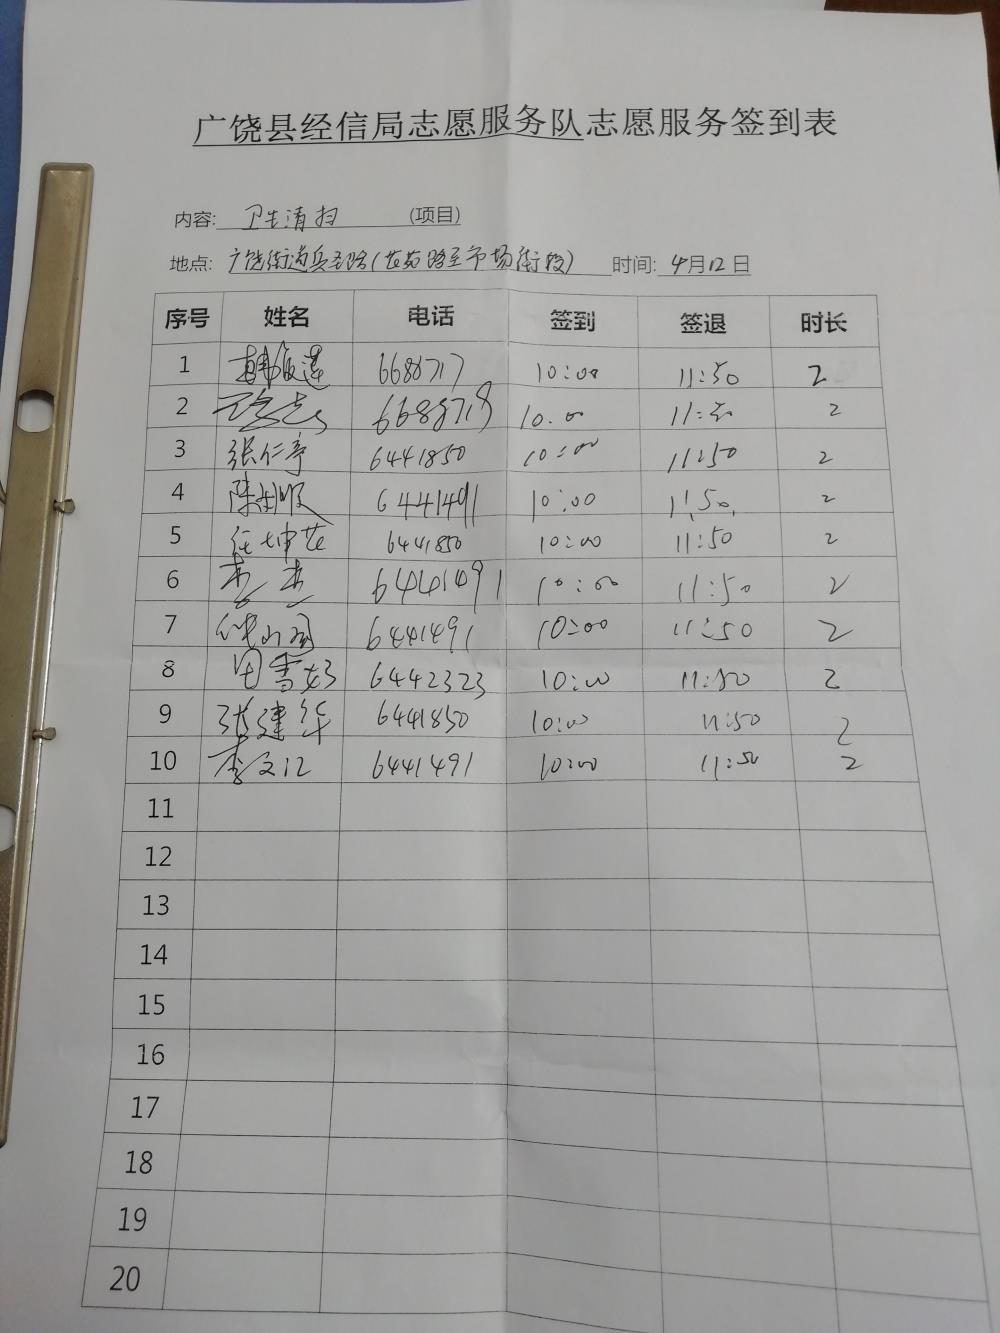 广饶县经信局志愿服务队志愿服务签到表
内容: 卫生清扫 (项目)
地点: 广饶街道兵圣路(花苑路至市场街段) 时间: 4月12日
序号 姓名 电话 签到 签退 时长
1 6688717 10:00 11:50 2
2 6688718 10:00 11:50 2
3 张仁亭 6441850 10:00 11:50 2
4 6441491 10:00 11:50 2
5 任坤花 6441850 10:00 11:50 2
6 6441491 10:00 11:50 2
7 6441491 10:00 11:50 2
8 田雪姣 6442323 10:00 11:50 2
9 张建华 6441850 10:00 11:50 2
10 李文江 6441491 10:00 11:50 2
11
12
13
14
15
16
17
18
19
20